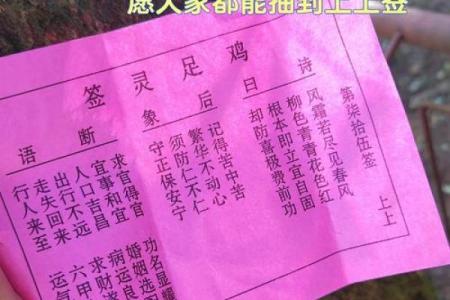 愿大家都能抽到上上签
鸡足灵签
第柒拾伍签 上上
诗曰
风霜若尽见春风
柳色青青花色红
根本即立宜自固
却防喜极费前功
后象
记得苦中苦
繁华不动心
须防仁不仁
守正保安宁
断语
求官得官
宜事和宜
人口吉昌
出行不远
走失回来
行人来至
功名显耀
婚姻选
病运良
求财遂
六甲
运气